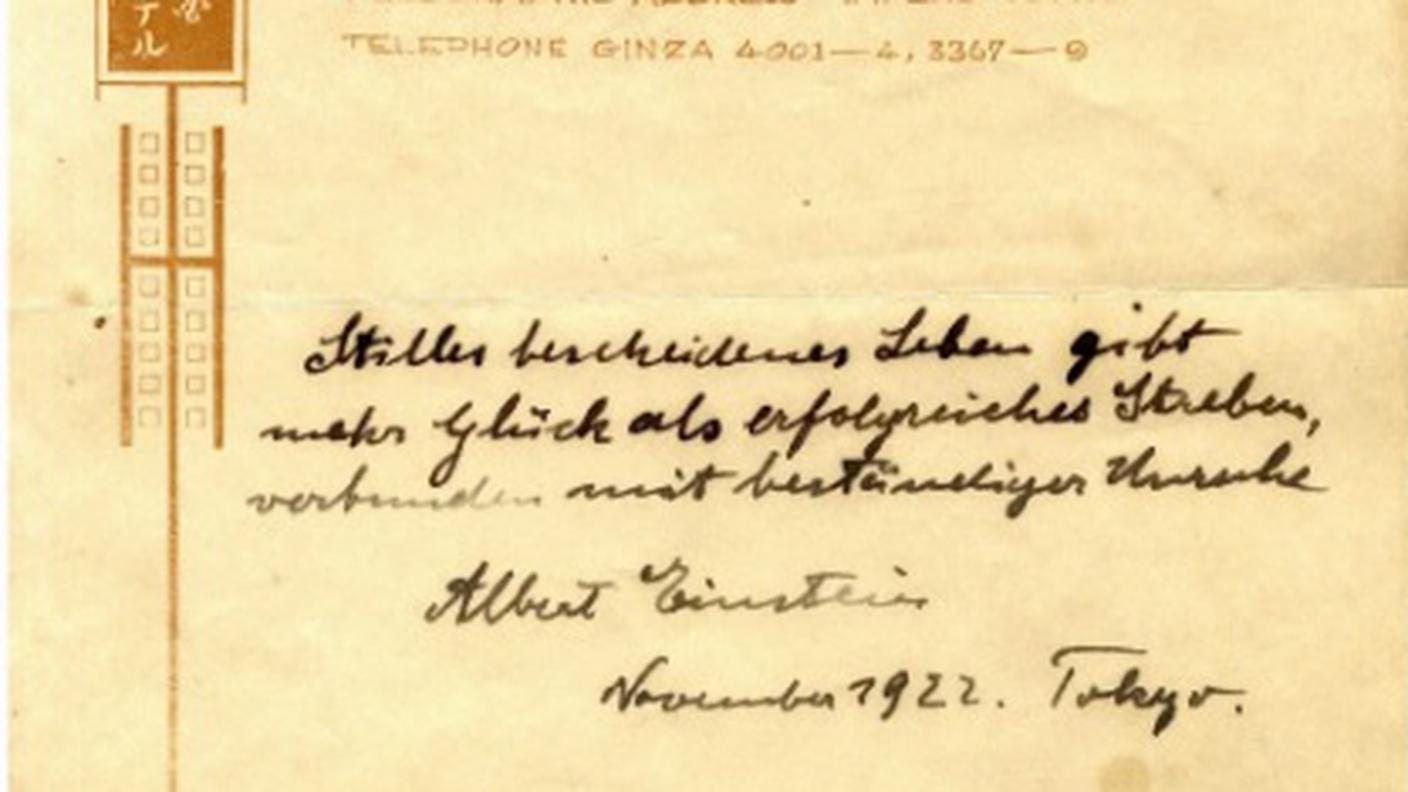 テル
ADDRESS
TELEPHONE GINZA 4001—4, 3367—9
Stilles bescheidenes Leben gibt
mehr Glück als erfolgreiches Streben,
verbunden mit beständiger Unruhe
Albert Einstein
November 1922. Tokyo.